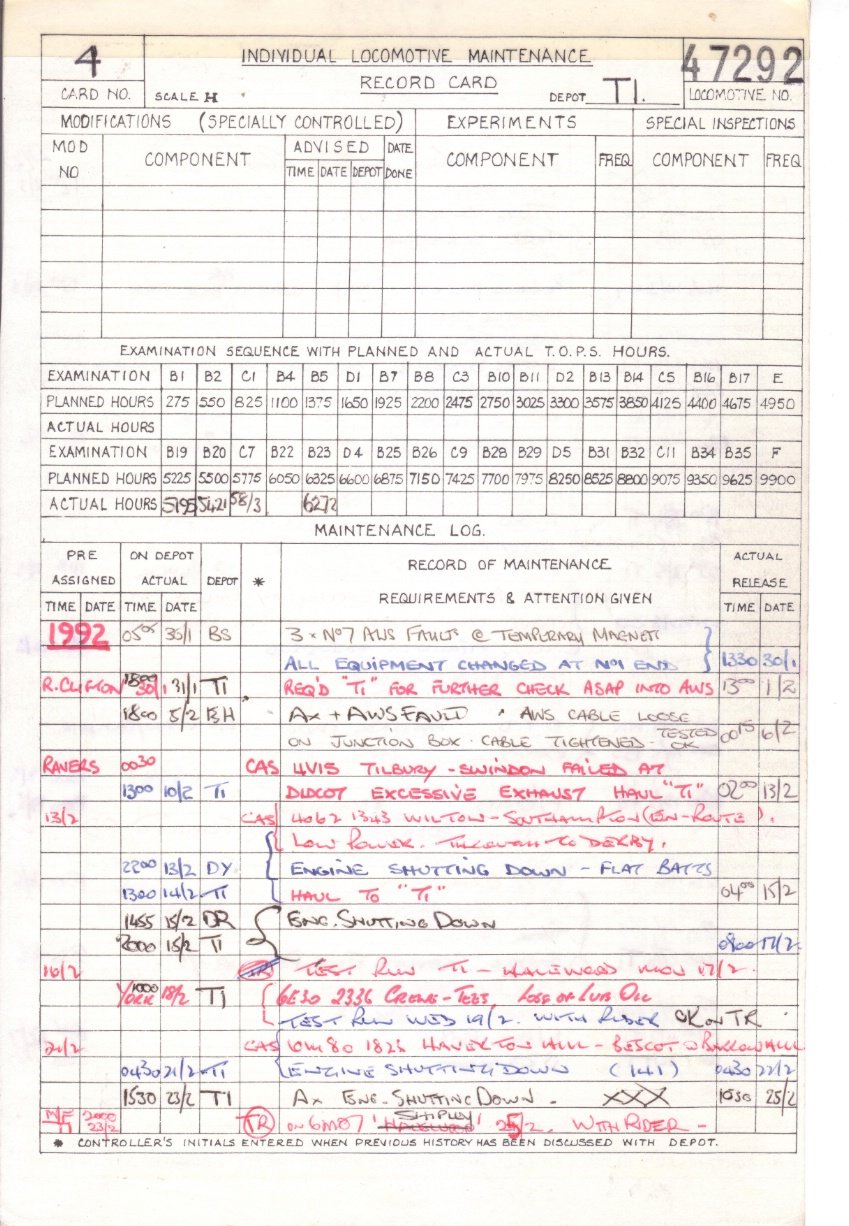 4 INDIVIDUAL LOCOMOTIVE MAINTENANCE 47292
CARD NO. SCALE H RECORD CARD DEPOT TI. LOCOMOTIVE NO.
MODIFICATIONS (SPECIALLY CONTROLLED) EXPERIMENTS SPECIAL INSPECTIONS
MOD NO COMPONENT ADVISED DATE DONE COMPONENT FREQ COMPONENT FREQ
TIME DATE DEPOT
EXAMINATION SEQUENCE WITH PLANNED AND ACTUAL T.O.P.S. HOURS.
EXAMINATION B1 B2 C1 B4 B5 D1 B7 B8 C3 B10 B11 D2 B13 B14 C5 B16 B17 E
PLANNED HOURS 275 550 825 1100 1375 1650 1925 2200 2475 2750 3025 3300 3575 3850 4125 4400 4675 4950
ACTUAL HOURS
EXAMINATION B19 B20 C7 B22 B23 D4 B25 B26 C9 B28 B29 D5 B31 B32 C11 B34 B35 F
PLANNED HOURS 5225 5500 5775 6050 6325 6600 6875 7150 7425 7700 7975 8250 8525 8800 9075 9350 9625 9900
ACTUAL HOURS 5195 5421 58/3 6272
MAINTENANCE LOG.
PRE ASSIGNED ON DEPOT ACTUAL DEPOT * RECORD OF MAINTENANCE ACTUAL RELEASE
TIME DATE TIME DATE REQUIREMENTS & ATTENTION GIVEN TIME DATE
1992 0505 30/1 BS 3 x No7 AWS FAULTS @ TEMPORARY MAGNETS
ALL EQUIPMENT CHANGED AT No1 END 1330 30/1
R. CLIFTON 1800 30/1 31/1 TI REQ'D "TI" FOR FURTHER CHECK ASAP INTO AWS 1300 1/2
1800 5/2 BH AX + AWS FAULT AWS CABLE LOOSE
ON JUNCTION BOX. CABLE TIGHTENED. TESTED OK 0015 6/2
RAVERS 0030 CAS 4V15 TILBURY - SWINDON FAILED AT
1300 10/2 TI DIDCOT EXCESSIVE EXHAUST HAUL "TI" 0200 13/2
13/2 CAS 4O62 1343 WILTON - SOUTHAMPTON (EN-ROUTE).
LOW POWER. THROUGH TO DERBY.
2200 13/2 DY ENGINE SHUTTING DOWN - FLAT BATTS
1300 14/2 TI HAUL TO "TI" 0400 15/2
1455 15/2 DR ENG. SHUTTING DOWN
2000 15/2 TI 0800 17/2
16/2 TEST RUN TI - HALEWOOD MON 17/2.
YORK 1000 18/2 TI 6E30 2336 CREWE - TEES, LOSS OF LUB OIL
TEST RUN WED 19/2. WITH RIDER OK ON TR
21/2 CAS 1823 HAVERTON HILL - BESCOT @ BARROW HILL
0430 21/2 TI ENGINE SHUTTING DOWN (141) 0430 22/2
1530 23/2 TI AX ENG. SHUTTING DOWN. XXX 1030 25/2
2000 23/2 TI TR ON 6M07 'HALEWOOD' SHIPLEY 25/2. WITH RIDER -
* CONTROLLER'S INITIALS ENTERED WHEN PREVIOUS HISTORY HAS BEEN DISCUSSED WITH DEPOT.